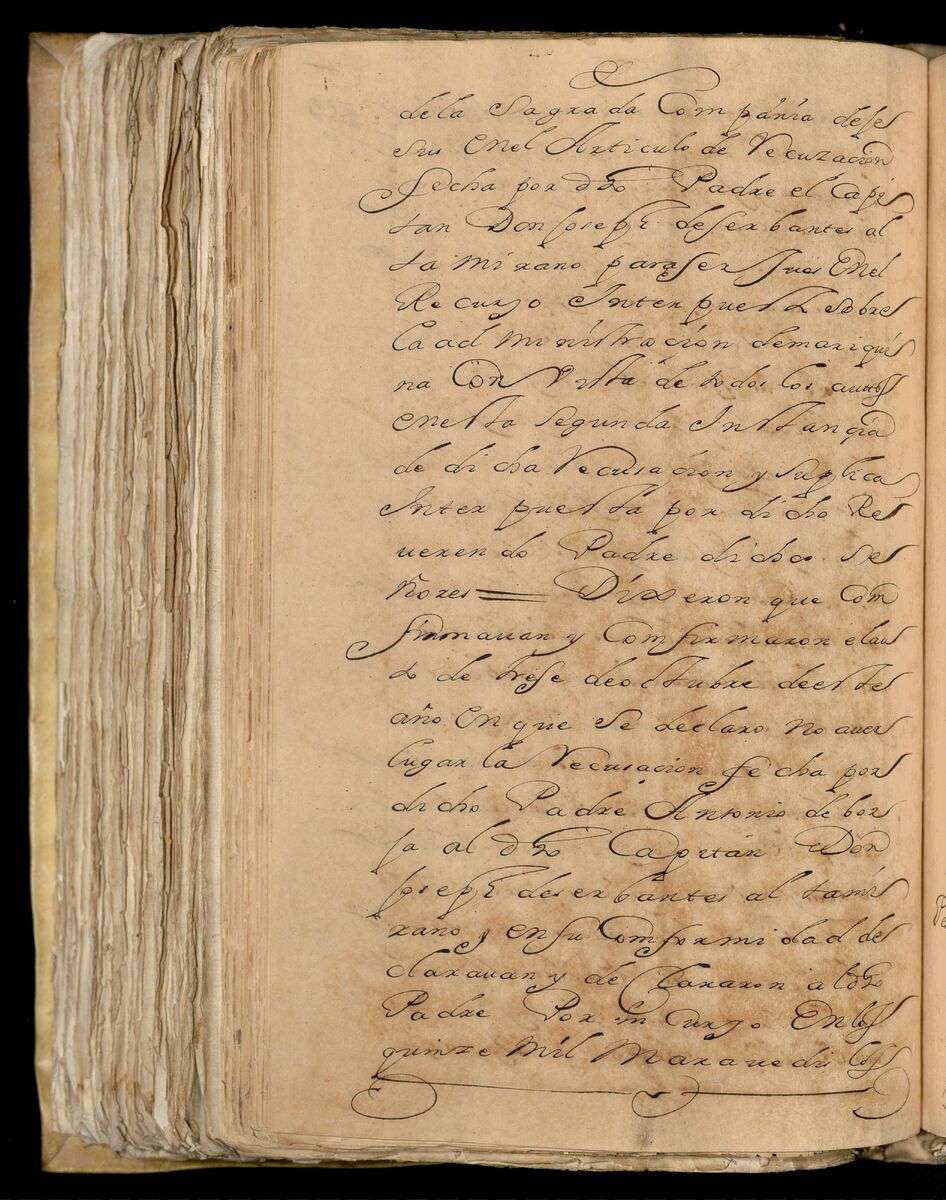 dela Sagrada Compania deJes
sus Enel Articulo de Recuzacion
fecha por dho Padre el Capi
tan Don Joseph deserbantes al
tamirano para ser Jues Enel
Recurso Interpuesto sobre
La administracion demariqui
na Con Vista de todos los autos
enesta segunda Instancia
de dicha Recusacion y suplica
Interpuesta por dicho Re
uerendo Padre dichos se
ñores = Dixeron que Con
firmauan y Comfirmaron elau
to de trese deoctubre deeste
año En que se declaro no auer
lugar la Recusacion fecha por
dicho Padre Antonio de bor
ja al dho Capitan Don
Joseph deserbantes al tami
rano y ensu Comformidad de
clarauan y de Clararon al dho
Padre Por in Curso En los
quinze Mil Marauedis los